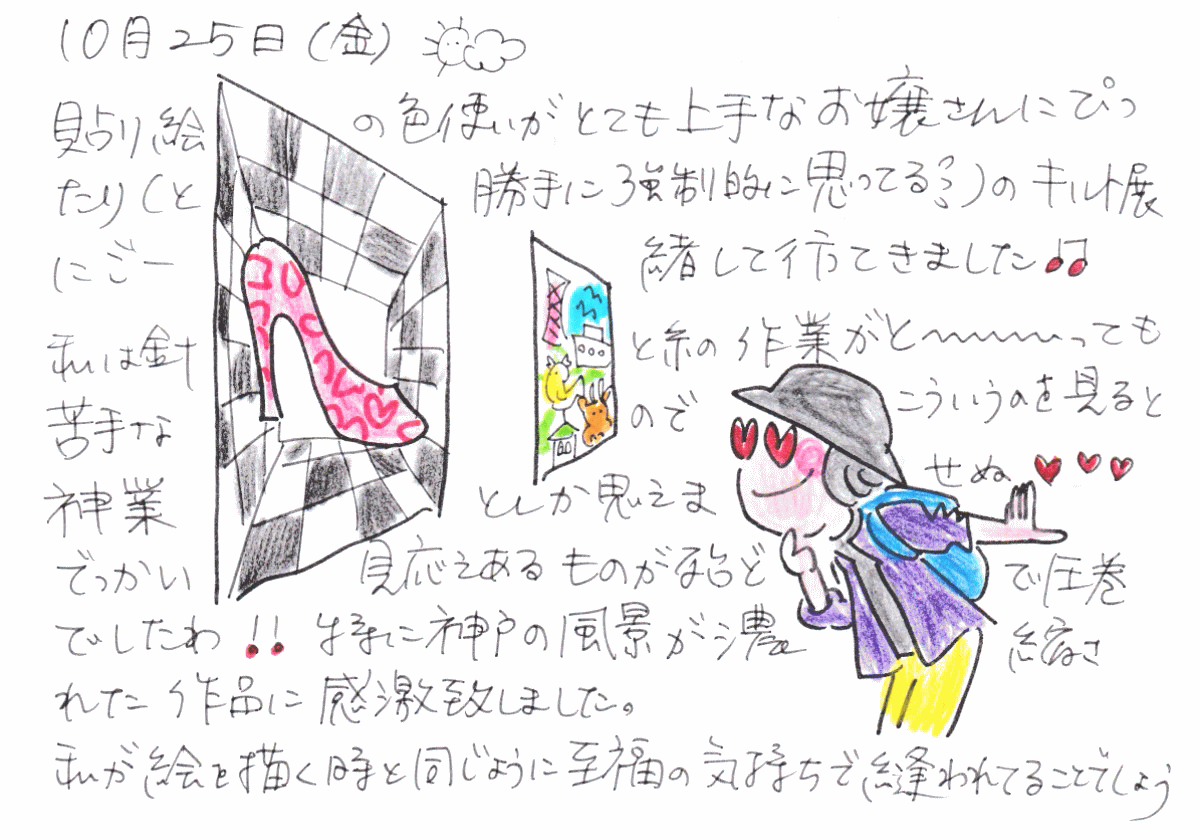 10月25日(金)
貼り絵の色使いがとても上手なお嬢さんにぴっ
たり(と勝手に強制的に思ってる?)のキルト展
にご一緒して行ってきました♫
私は針と糸の作業がと〜〜〜〜っても
苦手なのでこういうのを見ると
神業としか思えませぬ♥♥♥
でっかい見応えあるものが殆どで圧巻
でしたわ!!特に神戸の風景が濃縮さ
れた作品に感激致しました。
私が絵を描く時と同じように至福の気持ちで縫われてることでしょう